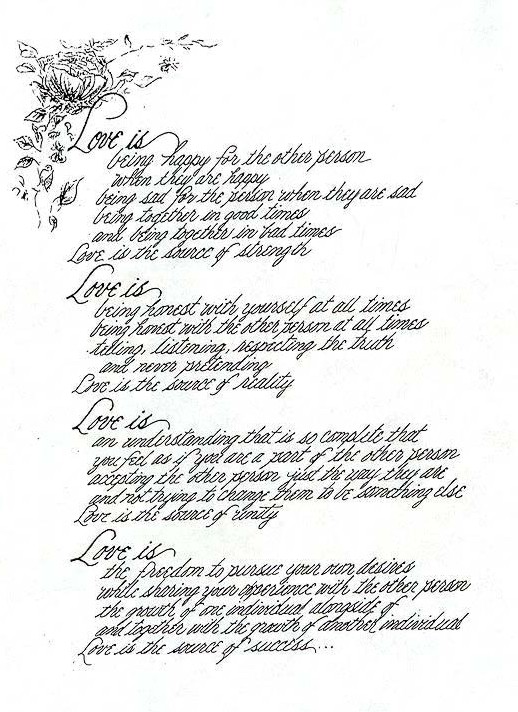 Love is
being happy for the other person
when they are happy
being sad for the person when they are sad
being together in good times
and being together in bad times
Love is the source of strength
Love is
being honest with yourself at all times
being honest with the other person at all times
telling, listening, respecting the truth
and never pretending
Love is the source of reality
Love is
an understanding that is so complete that
you feel as if you are a part of the other person
accepting the other person just the way they are
and not trying to change them to be something else
Love is the source of unity
Love is
the freedom to pursue your own desires
while sharing your experience with the other person
the growth of one individual alongside of
and together with the growth of another individual
Love is the source of success...